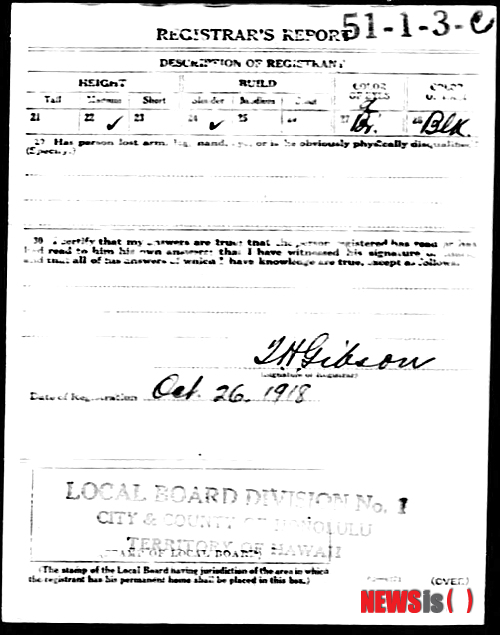 REGISTRAR'S REPORT 51-1-3-C
DESCRIPTION OF REGISTRANT
HEIGHT BUILD COLOR OF EYES COLOR OF HAIR
Tall Medium Short Slender Medium Stout
21 22 ✓ 23 24 ✓ 25 27 Br. 28 Blk.
29 Has person lost arm, leg, hand, eye, or is he obviously physically disqualified?
(Specify.)
30 I certify that my answers are true; that the person registered has read or has
had read to him his own answers; that I have witnessed his signature or
and that all of his answers of which I have knowledge are true, except as follows:
T.H. Gibson
(Signature of Registrar)
Date of Registration Oct. 26, 1918
LOCAL BOARD DIVISION No. 1
CITY & COUNTY OF HONOLULU
TERRITORY OF HAWAII
(STAMP OF LOCAL BOARD)
(The stamp of the Local Board having jurisdiction of the area in which
the registrant has his permanent home shall be placed in this box.)
(OVER)
NEWSis( )